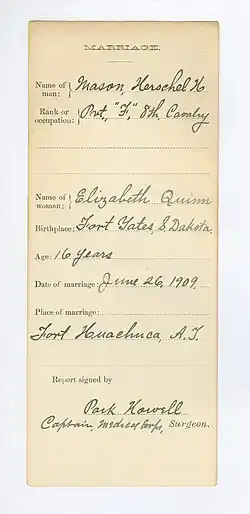 MARRIAGE.
Name of man: Mason, Herschel H.
Rank or occupation: Pvt., "F," 8th Cavalry
Name of woman: Elizabeth Quinn
Birthplace: Fort Yates, S. Dakota.
Age: 16 years
Date of marriage: June 26, 1909.
Place of marriage:
Fort Huachuca, A.T.
Report signed by
Park Howell
Captain, Medical Corps, Surgeon.